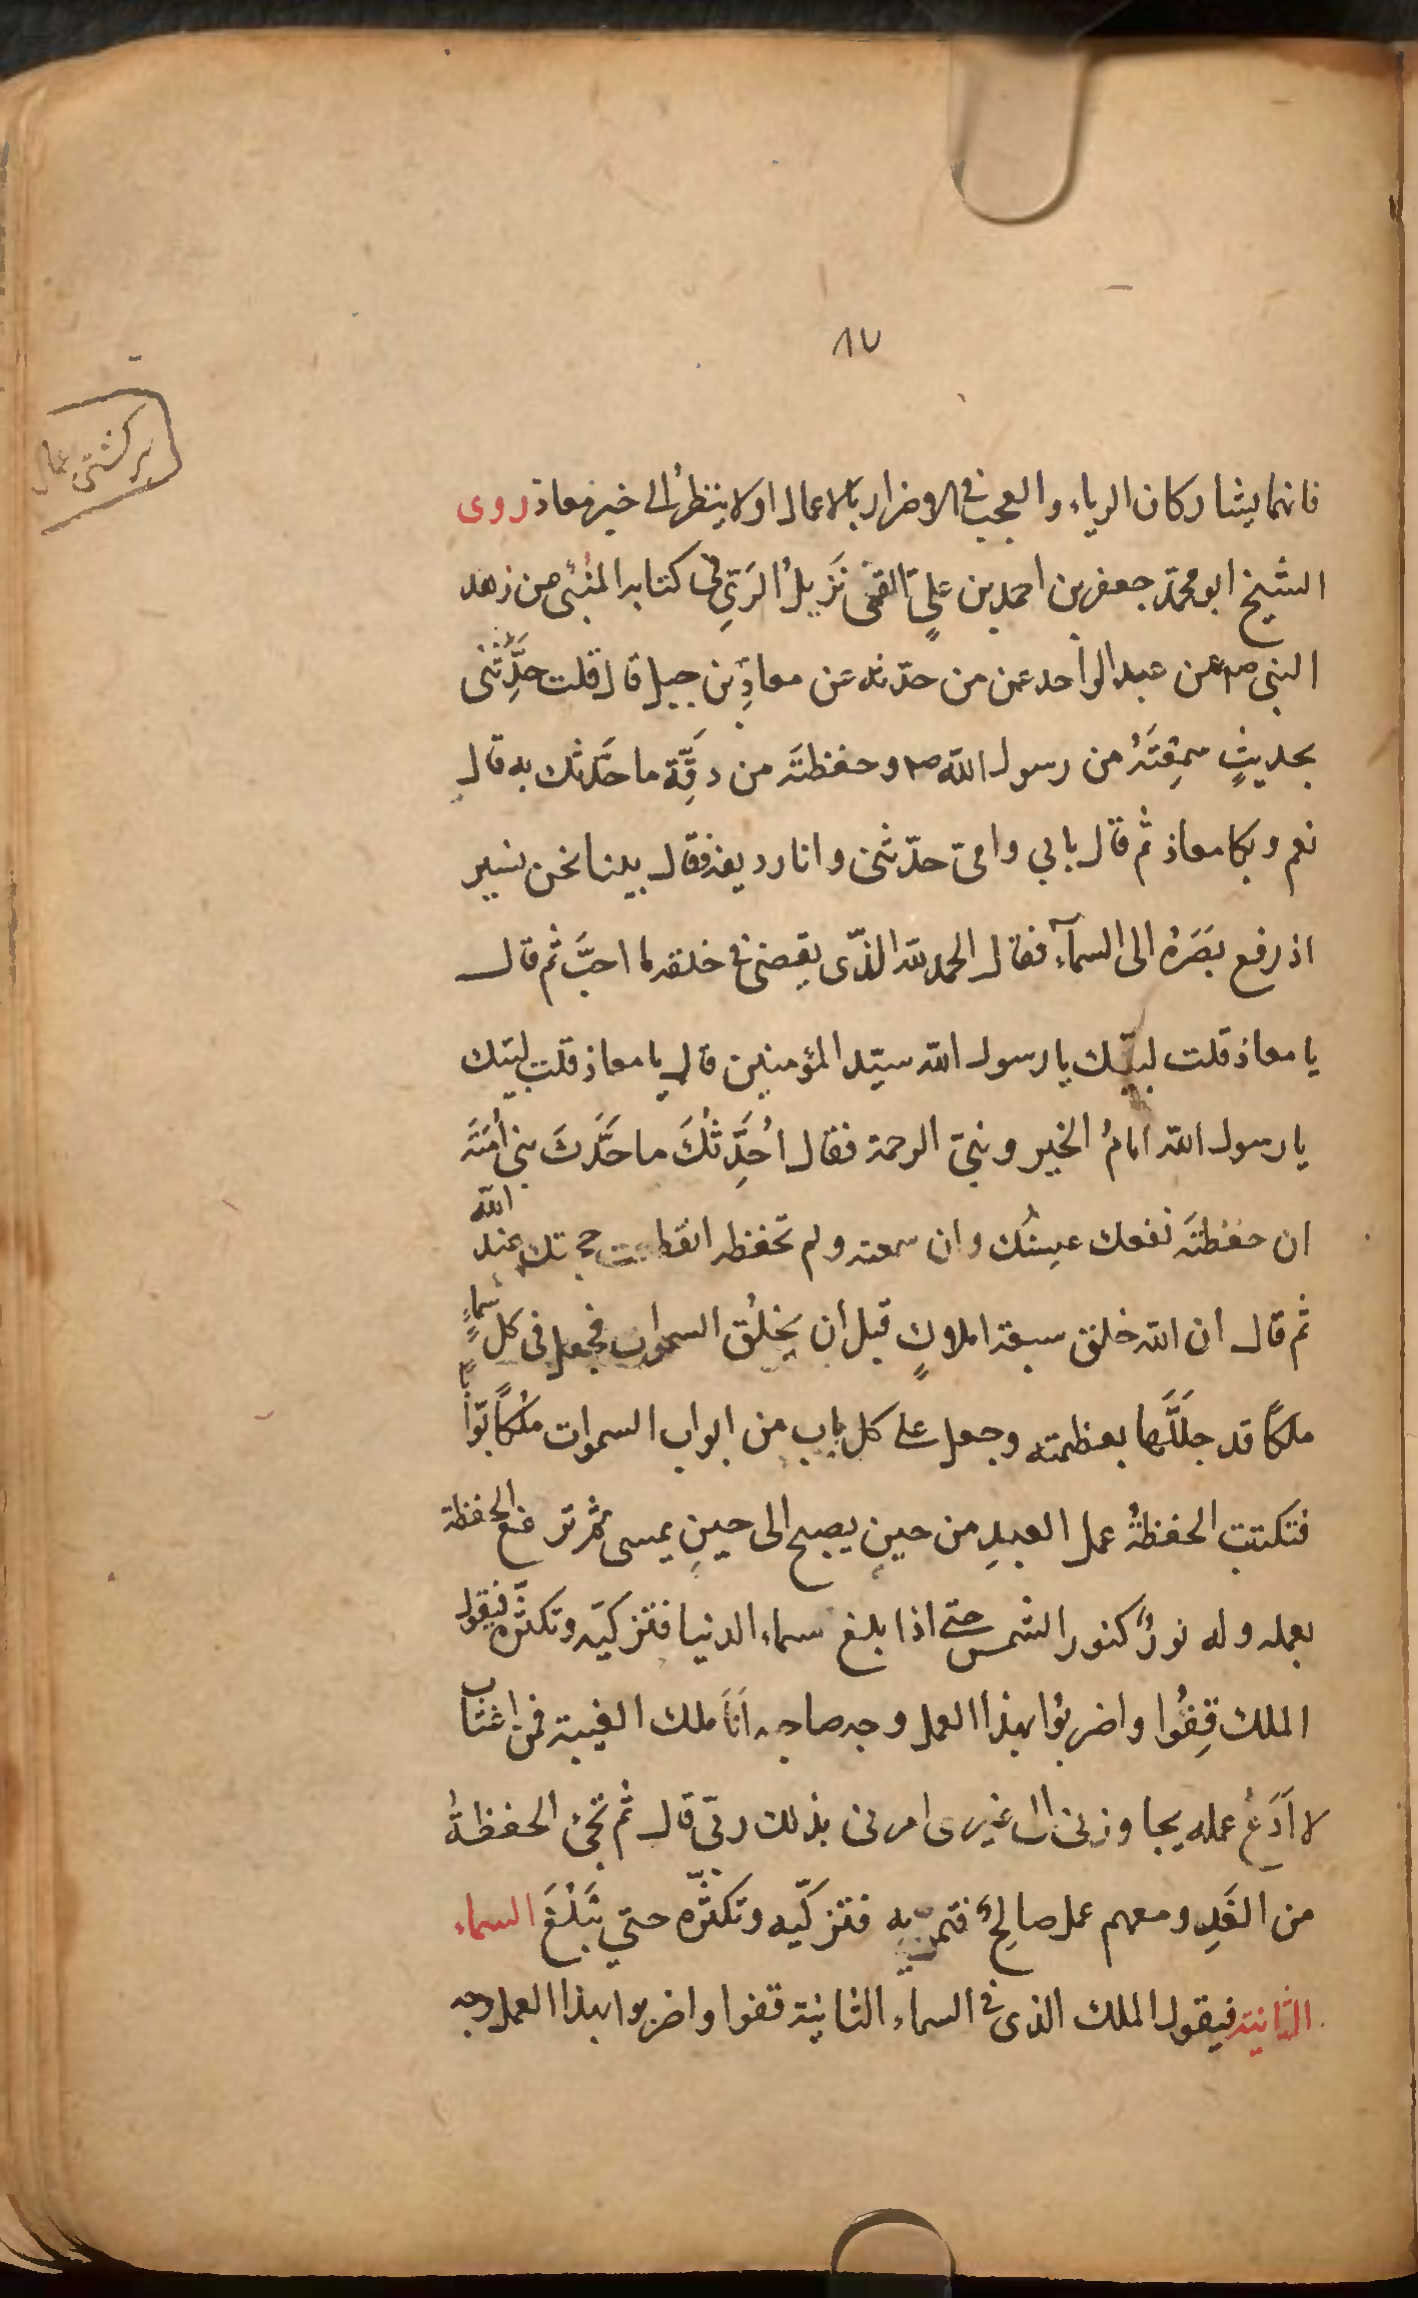 ٨٧
برگشتی عمال
فانهما يشاركان الرياء والعجب في الاضرار بالاعمال اولا ينتظر الى خبر معاذ روى
الشيخ ابو محمد جعفر بن احمد بن عليٍ القمّى نَزيلُ الرَىِّ في كتابه المنبئ من زهد
النبى ص عن عبد الواحد عمن من حدّثه عن معاذِ بن جبل قال قلت حدِّثنى
بحديثٍ سمِعْتَهُ من رسول الله ص وحفظتَه من دقَّة ما حَدَّثك به قال
نعم وبكا معاذ ثم قال بابي وامىّ حدّثنى وانا رديفه فقال بينا نحن نسير
اذ رفع بَصَرَهُ الى السمآء فقال الحمد لله الّذى يقضى فى خلقه ما احبَّ ثم قال
يا معاذ قلت لبيّك يا رسول الله سيّد المؤمنين قال يا معاذ قلت لبيّك
يا رسول الله امامُ الخير ونبىّ الرحمة فقال اُحَدِّثُكَ ما حَدَّثَ نبى اُمتَه
ان حفظتَه نفعك عيشُك وان سمعته ولم تحفظه انقطعت حجتك عند الله
ثم قال ان الله خلق سبعة املاكٍ قبل ان يخلُق السموات فجعل فى كل سماءٍ
ملكًا قد جلَلَّها بعظمته وجعل على كل باب من ابواب السموات ملكًا بوّابا
فتكتب الحفظةُ عمل العبدِ من حينِ يصبح الى حينِ يمسى ثم ترفع الحفظة
بعمله وله نورٌ كنور الشمس حتى اذا بلغ سماء الدنيا فتزكيّه وتكثّره فيقول
الملك قِفُوا واضربوُا بهذا العمل وجه صاحبه اَنَا ملك الغيبة فمن اغتاب
لا اَدَعُ عمله يجاوزنى الى غيرى امرنى بذلك ربّى قال ثم تجئ الحفظةُ
من الغَدِ ومعهم عمل صالِحٌ فتمرّ به فتزكّيه وتكثّره حتي تَبْلُغَ السماء
الثانية فيقول الملك الذى فى السماء الثانية قفوا واضربوا بهذا العمل وجه